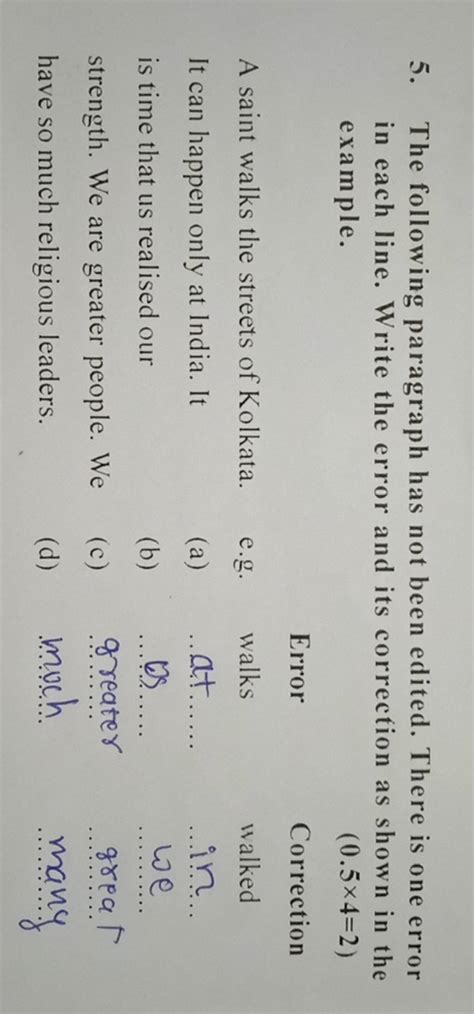 5. The following paragraph has not been edited. There is one error
in each line. Write the error and its correction as shown in the
example. (0.5×4=2)
Error Correction
A saint walks the streets of Kolkata. e.g. walks walked
It can happen only at India. It (a) ...at...... ...in...
is time that us realised our (b) .....us...... we
strength. We are greater people. We (c) greater great
have so much religious leaders. (d) much many